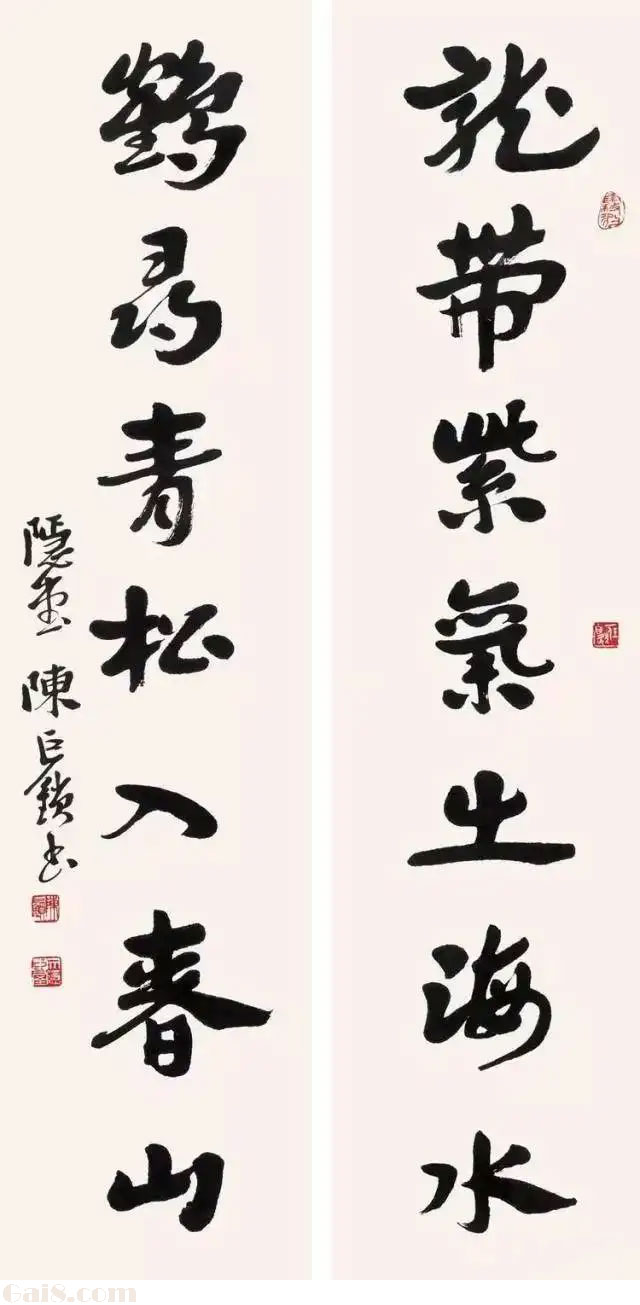 龍帶紫氣出海水
鶴尋青松入春山
隱堂 陳巨鎖書
Gai8.com